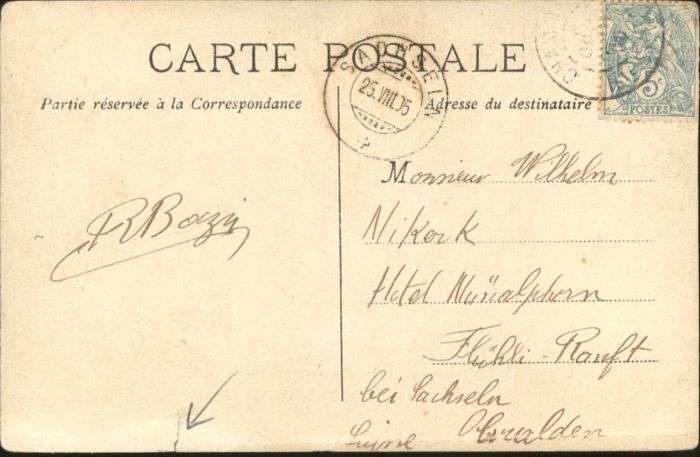 CARTE POSTALE
SACHSELN
25.VIII.05
Partie réservée à la Correspondance
Adresse du destinataire
5c
POSTES
Monsieur Wilhelm
Nikerk
Hotel Nünalphorn
Flühli-Ranft
bei Sachseln
Suisse Obwalden